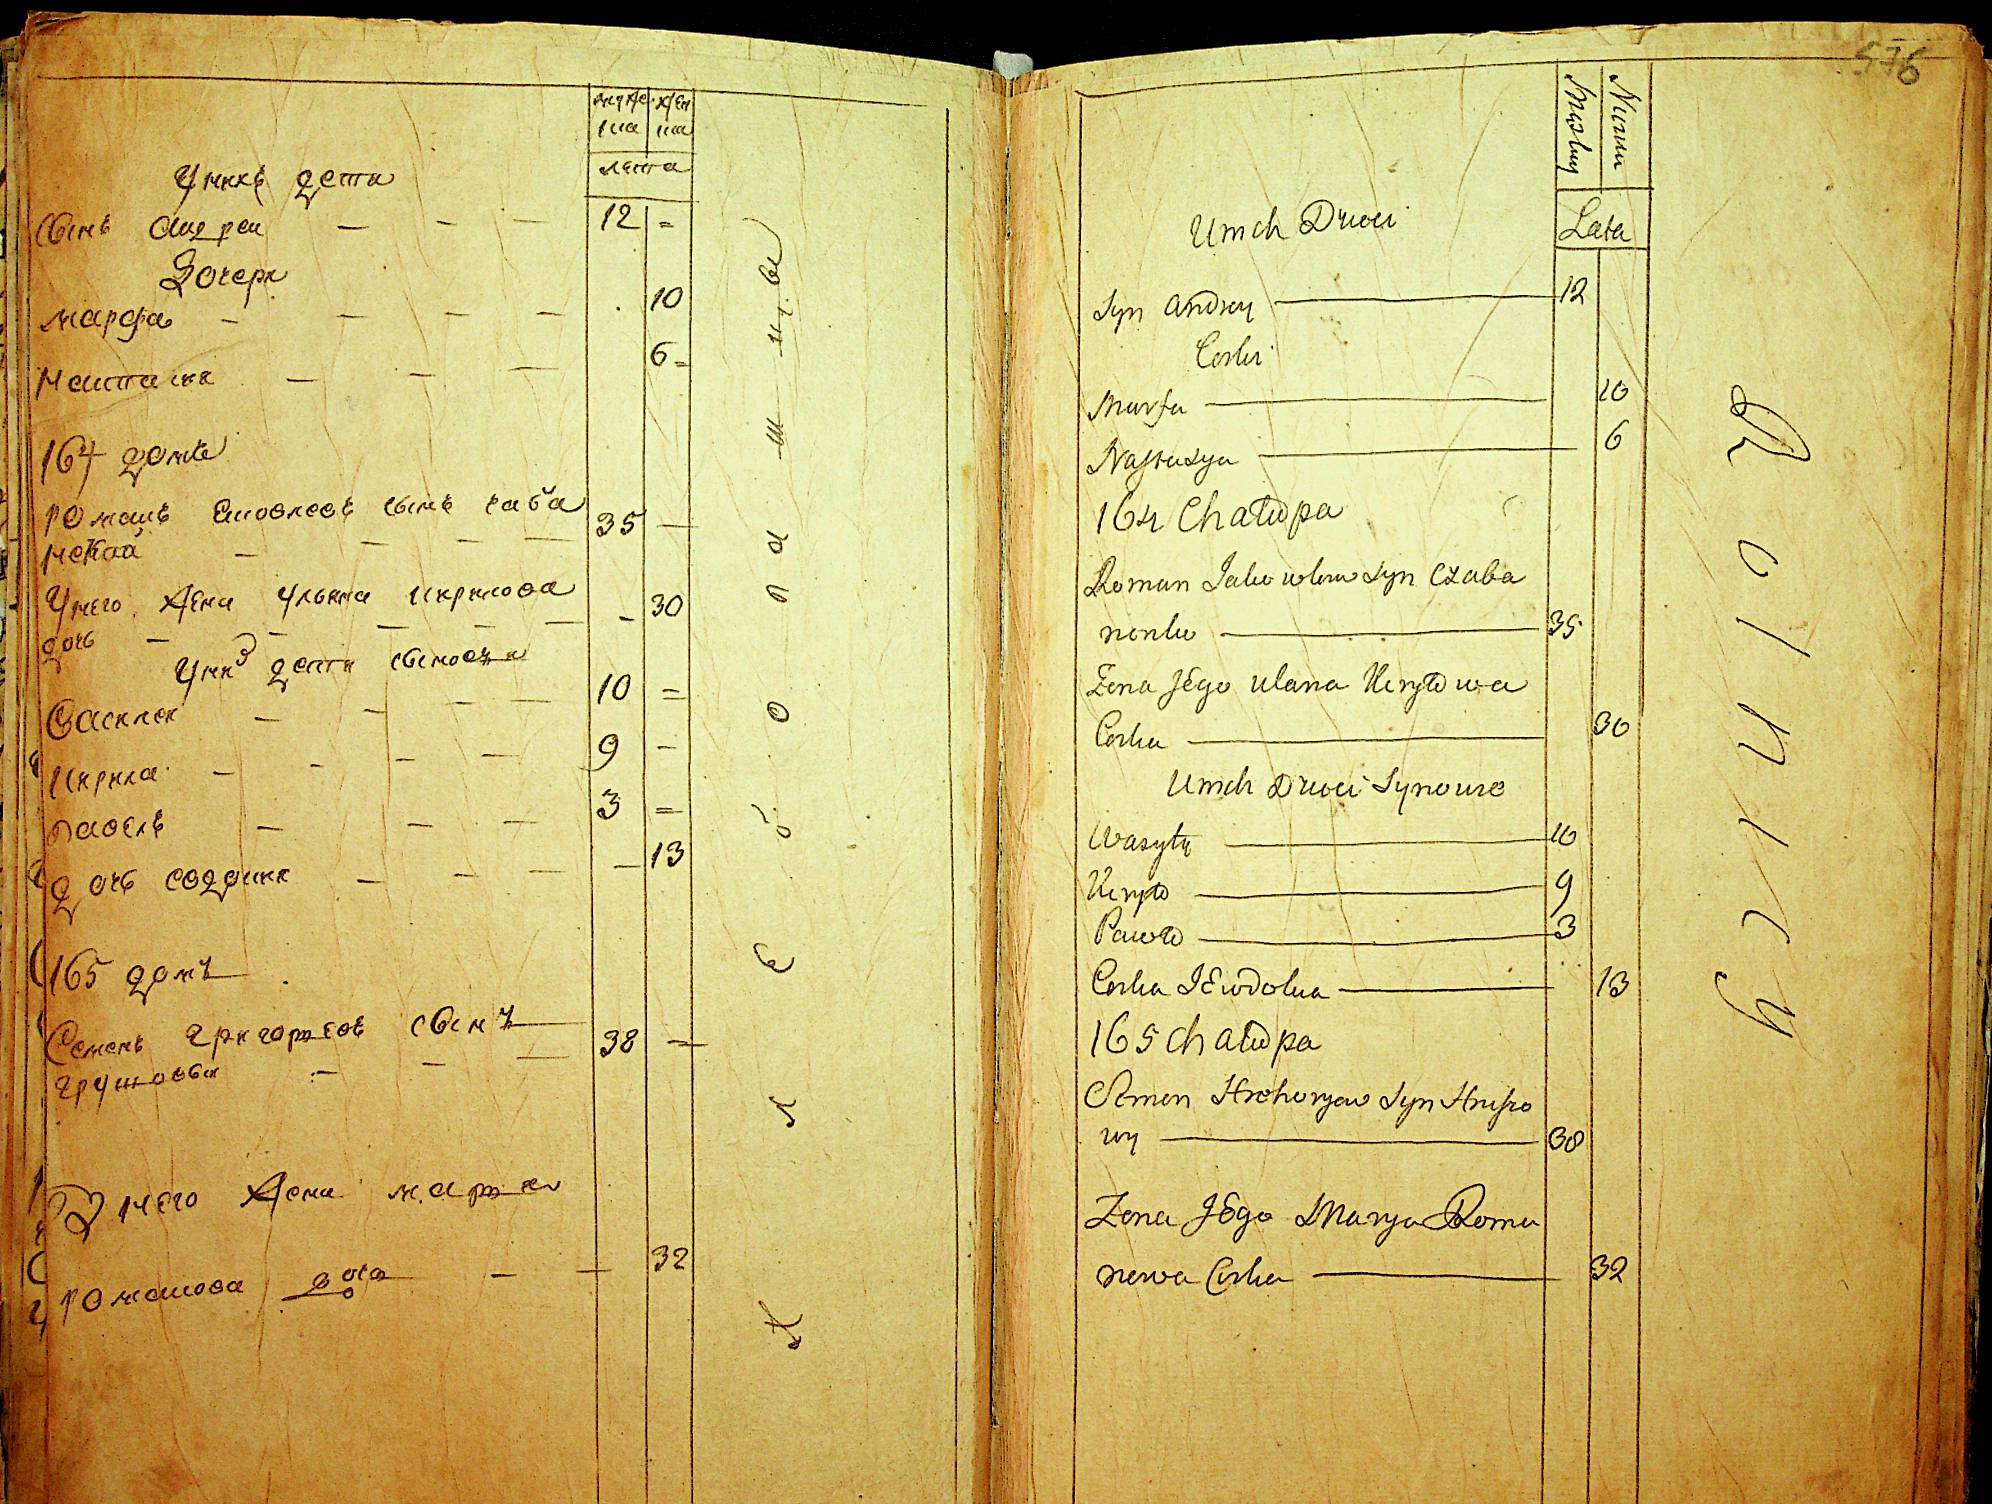 муже жен
ска ска
лета
У них дети
Сынъ андреи 12
Дочери
марфа 10
настасия 6
164 домъ
романъ яковлевъ сынъ чаба
ненкой 35
У него жена ульяна кирилова
дочь 30
У них дети сыновья
василеи 10
кирила 9
павелъ 3
дочь евдокия 13
165 домъ
Семенъ григорьевъ сынъ 38
грушовы
У него жена марья
романова дочь 32
хлебопашцы
576
Umch Dzieci
Lata
Syn Andrey 12
Corki
Marfa 10
Nastasya 6
164 Chałupa
Roman Jakowlew Syn Czaba
nenko 35
Zena Jego Ulana Keryłowa
Corka 30
Umch Dzieci Synowie
Wasyły 10
Keryło 9
Paweł 3
Corka Jewdokia 13
165 Chałupa
Semen Hrehoryew Syn Hruszo
wy 38
Zena Jego Marya Roma
nowa Corka 32
Rolnicy